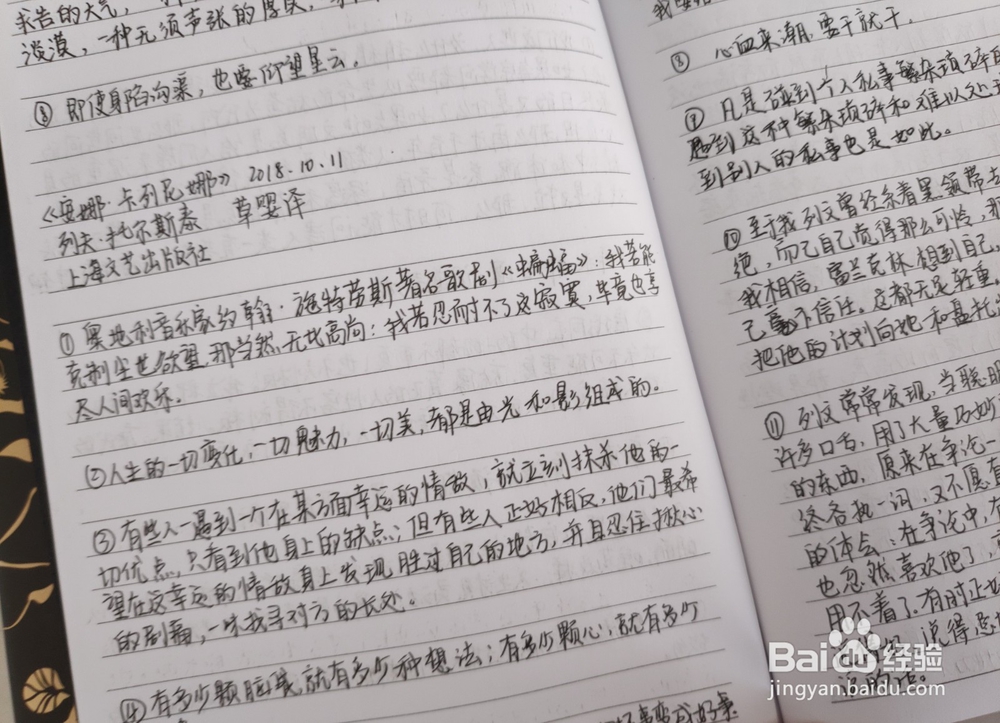 我告的大气,
淡漠,一种无须声张的厚实,
⑧ 即使身陷沟渠,也要仰望星云。
《安娜·卡列尼娜》 2018.10.11
列夫·托尔斯泰 草婴译
上海文艺出版社
① 奥地利音乐家约翰·施特劳斯著名歌剧《蝙蝠》:我若能
克制尘世欲望,那当然无比高尚;我若忍耐不了这寂寞,毕竟也享
尽人间欢乐。
② 人生的一切变化,一切魅力,一切美,都是由光和影组成的。
③ 有些人一遇到一个在某方面幸运的情敌,就立刻抹杀他的一
切优点,只看到他身上的缺点;但有些人正好相反,他们最希
望在这幸运的情敌身上发现胜过自己的地方,并且忍住揪心
的剧痛,一味找寻对方的长处。
④ 有多少颗脑袋,就有多少种想法;有多少颗心,就有多少
好事变成好事
⑧ 心血来潮,要干就干。
⑨ 凡是碰到个人私事繁杂琐碎
遇到这种繁杂琐碎和难以处
到别人的私事也是如此。
⑩ 至于我列文曾经系着黑领带去
绝,而己自己觉得那么可怜,那
我相信,富兰克林想到自己,
己毫不信任。这都无足轻重,
把他的计划向她和盘托
⑪ 列文常常发现,当聪明
许多口舌,用了大量巧妙
的东西,原来在争论一
终各执一词,又不愿意
的体会:在争论中,有
也忽然喜欢他了,
用不着了。有时正
说得恳
Baidu经验
jingyan.baidu.com